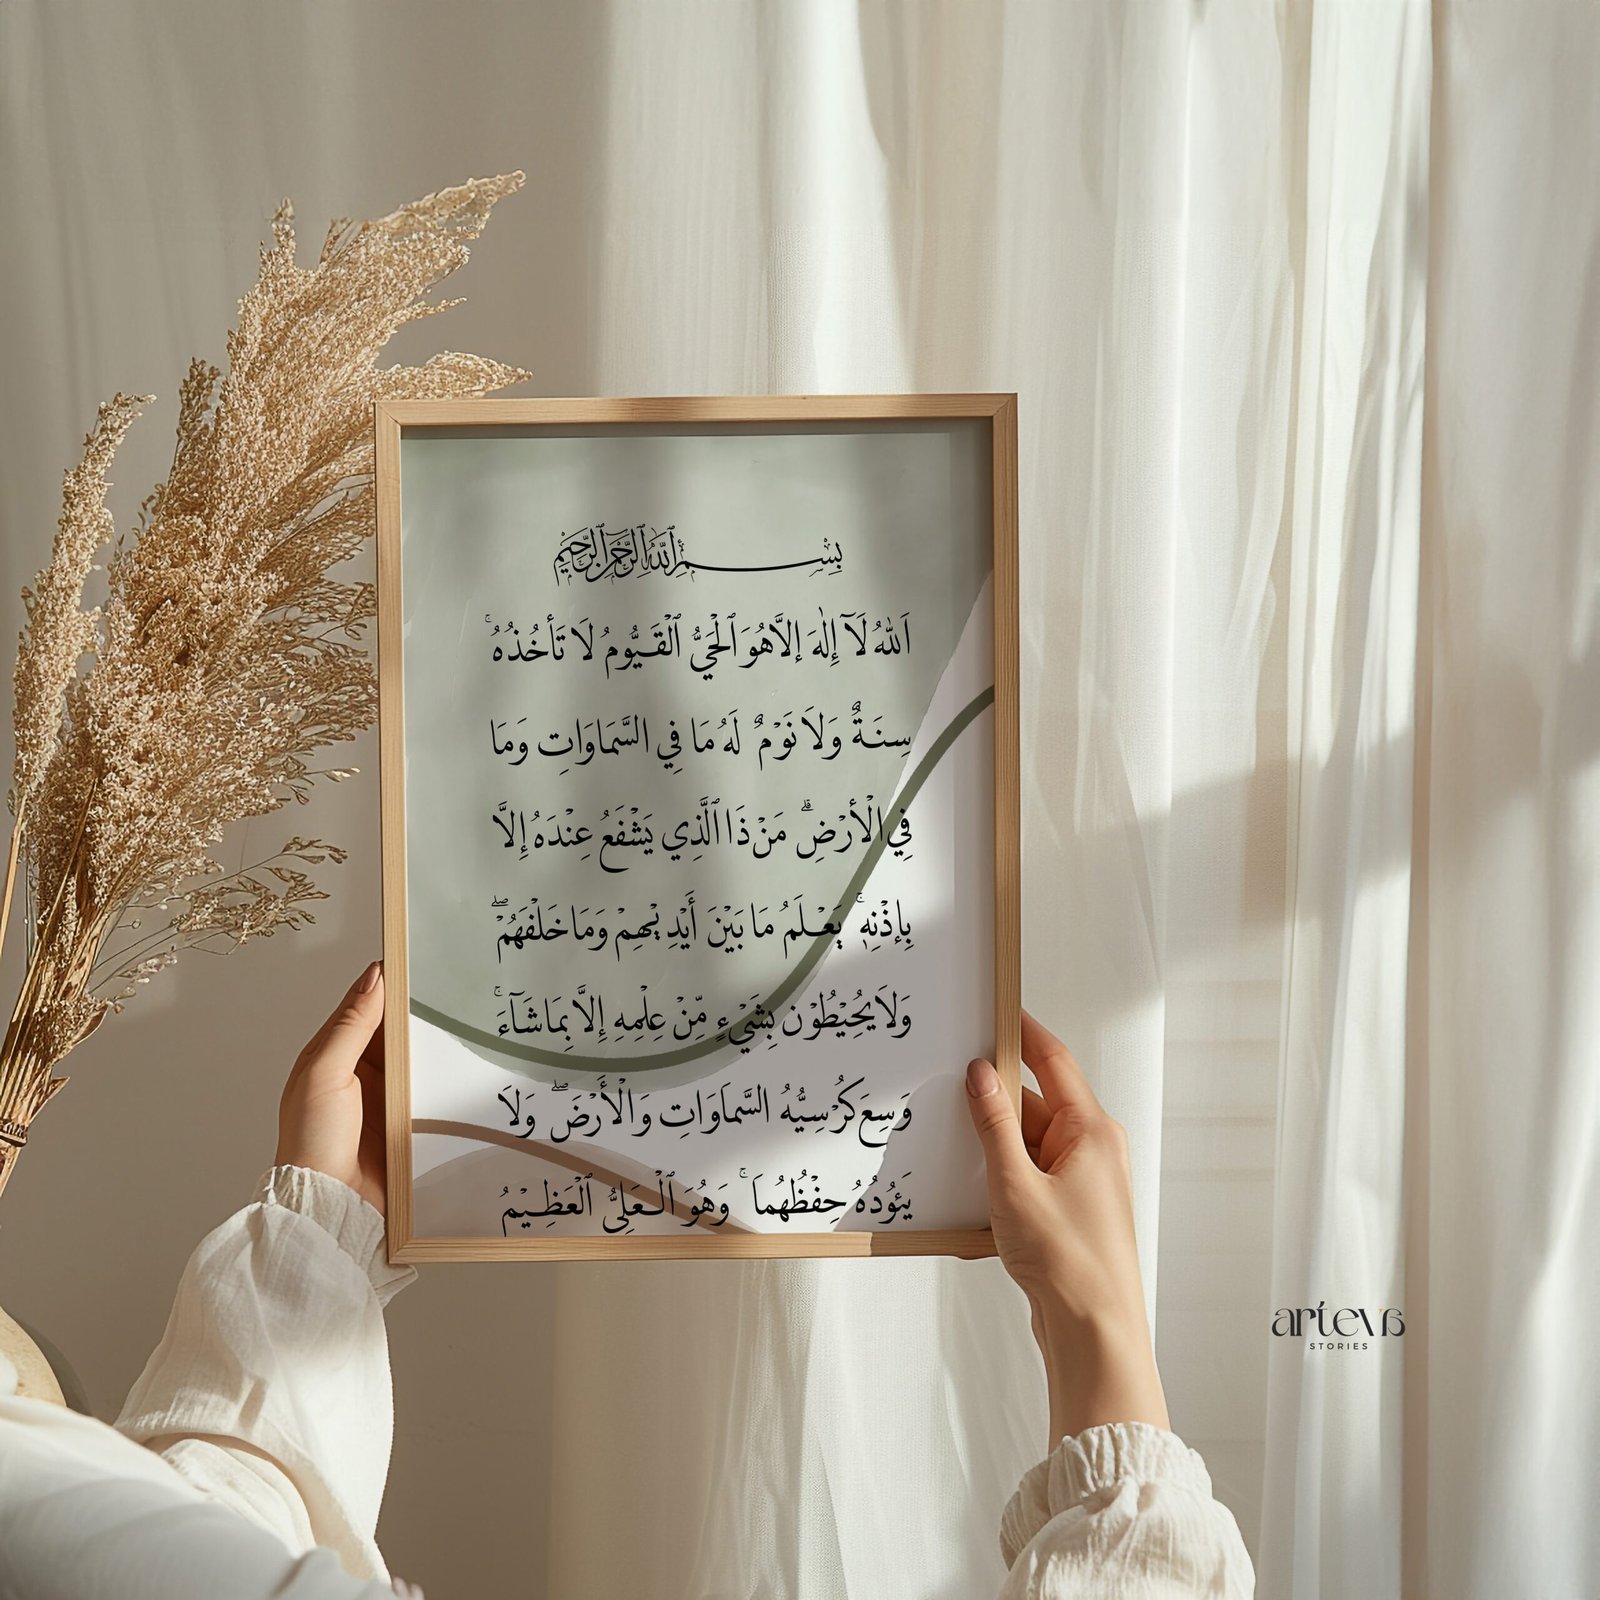 بِسْمِ ٱللَّهِ ٱلرَّحْمَٰنِ ٱلرَّحِيمِ
اَللّٰهُ لَآ إِلٰهَ إِلاَّ هُوَ ٱلْحَيُّ ٱلْقَيُّومُ لَا تَأْخُذُهُ ۚ
سِنَةٌ وَلَا نَوْمٌ لَهُ مَا فِي السَّمَاوَاتِ وَمَا
فِي الْأَرْضِ ۗ مَنْ ذَا ٱلَّذِي يَشْفَعُ عِنْدَهُ إِلاَّ
بِإِذْنِهِ ۚ يَعْلَمُ مَا بَيْنَ أَيْدِيْهِمْ وَمَا خَلْفَهُمْ ۖ
وَلَا يُحِيْطُوْنَ بِشَيْءٍ مِّنْ عِلْمِهِ إِلاَّ بِمَا شَآءَ ۚ
وَسِعَ كُرْسِيُّهُ السَّمَاوَاتِ وَالْأَرْضَ ۖ وَلَا
يَئُودُهُ حِفْظُهُمَا ۚ وَهُوَ ٱلْعَلِيُّ ٱلْعَظِيْمُ
arteva
STORIES